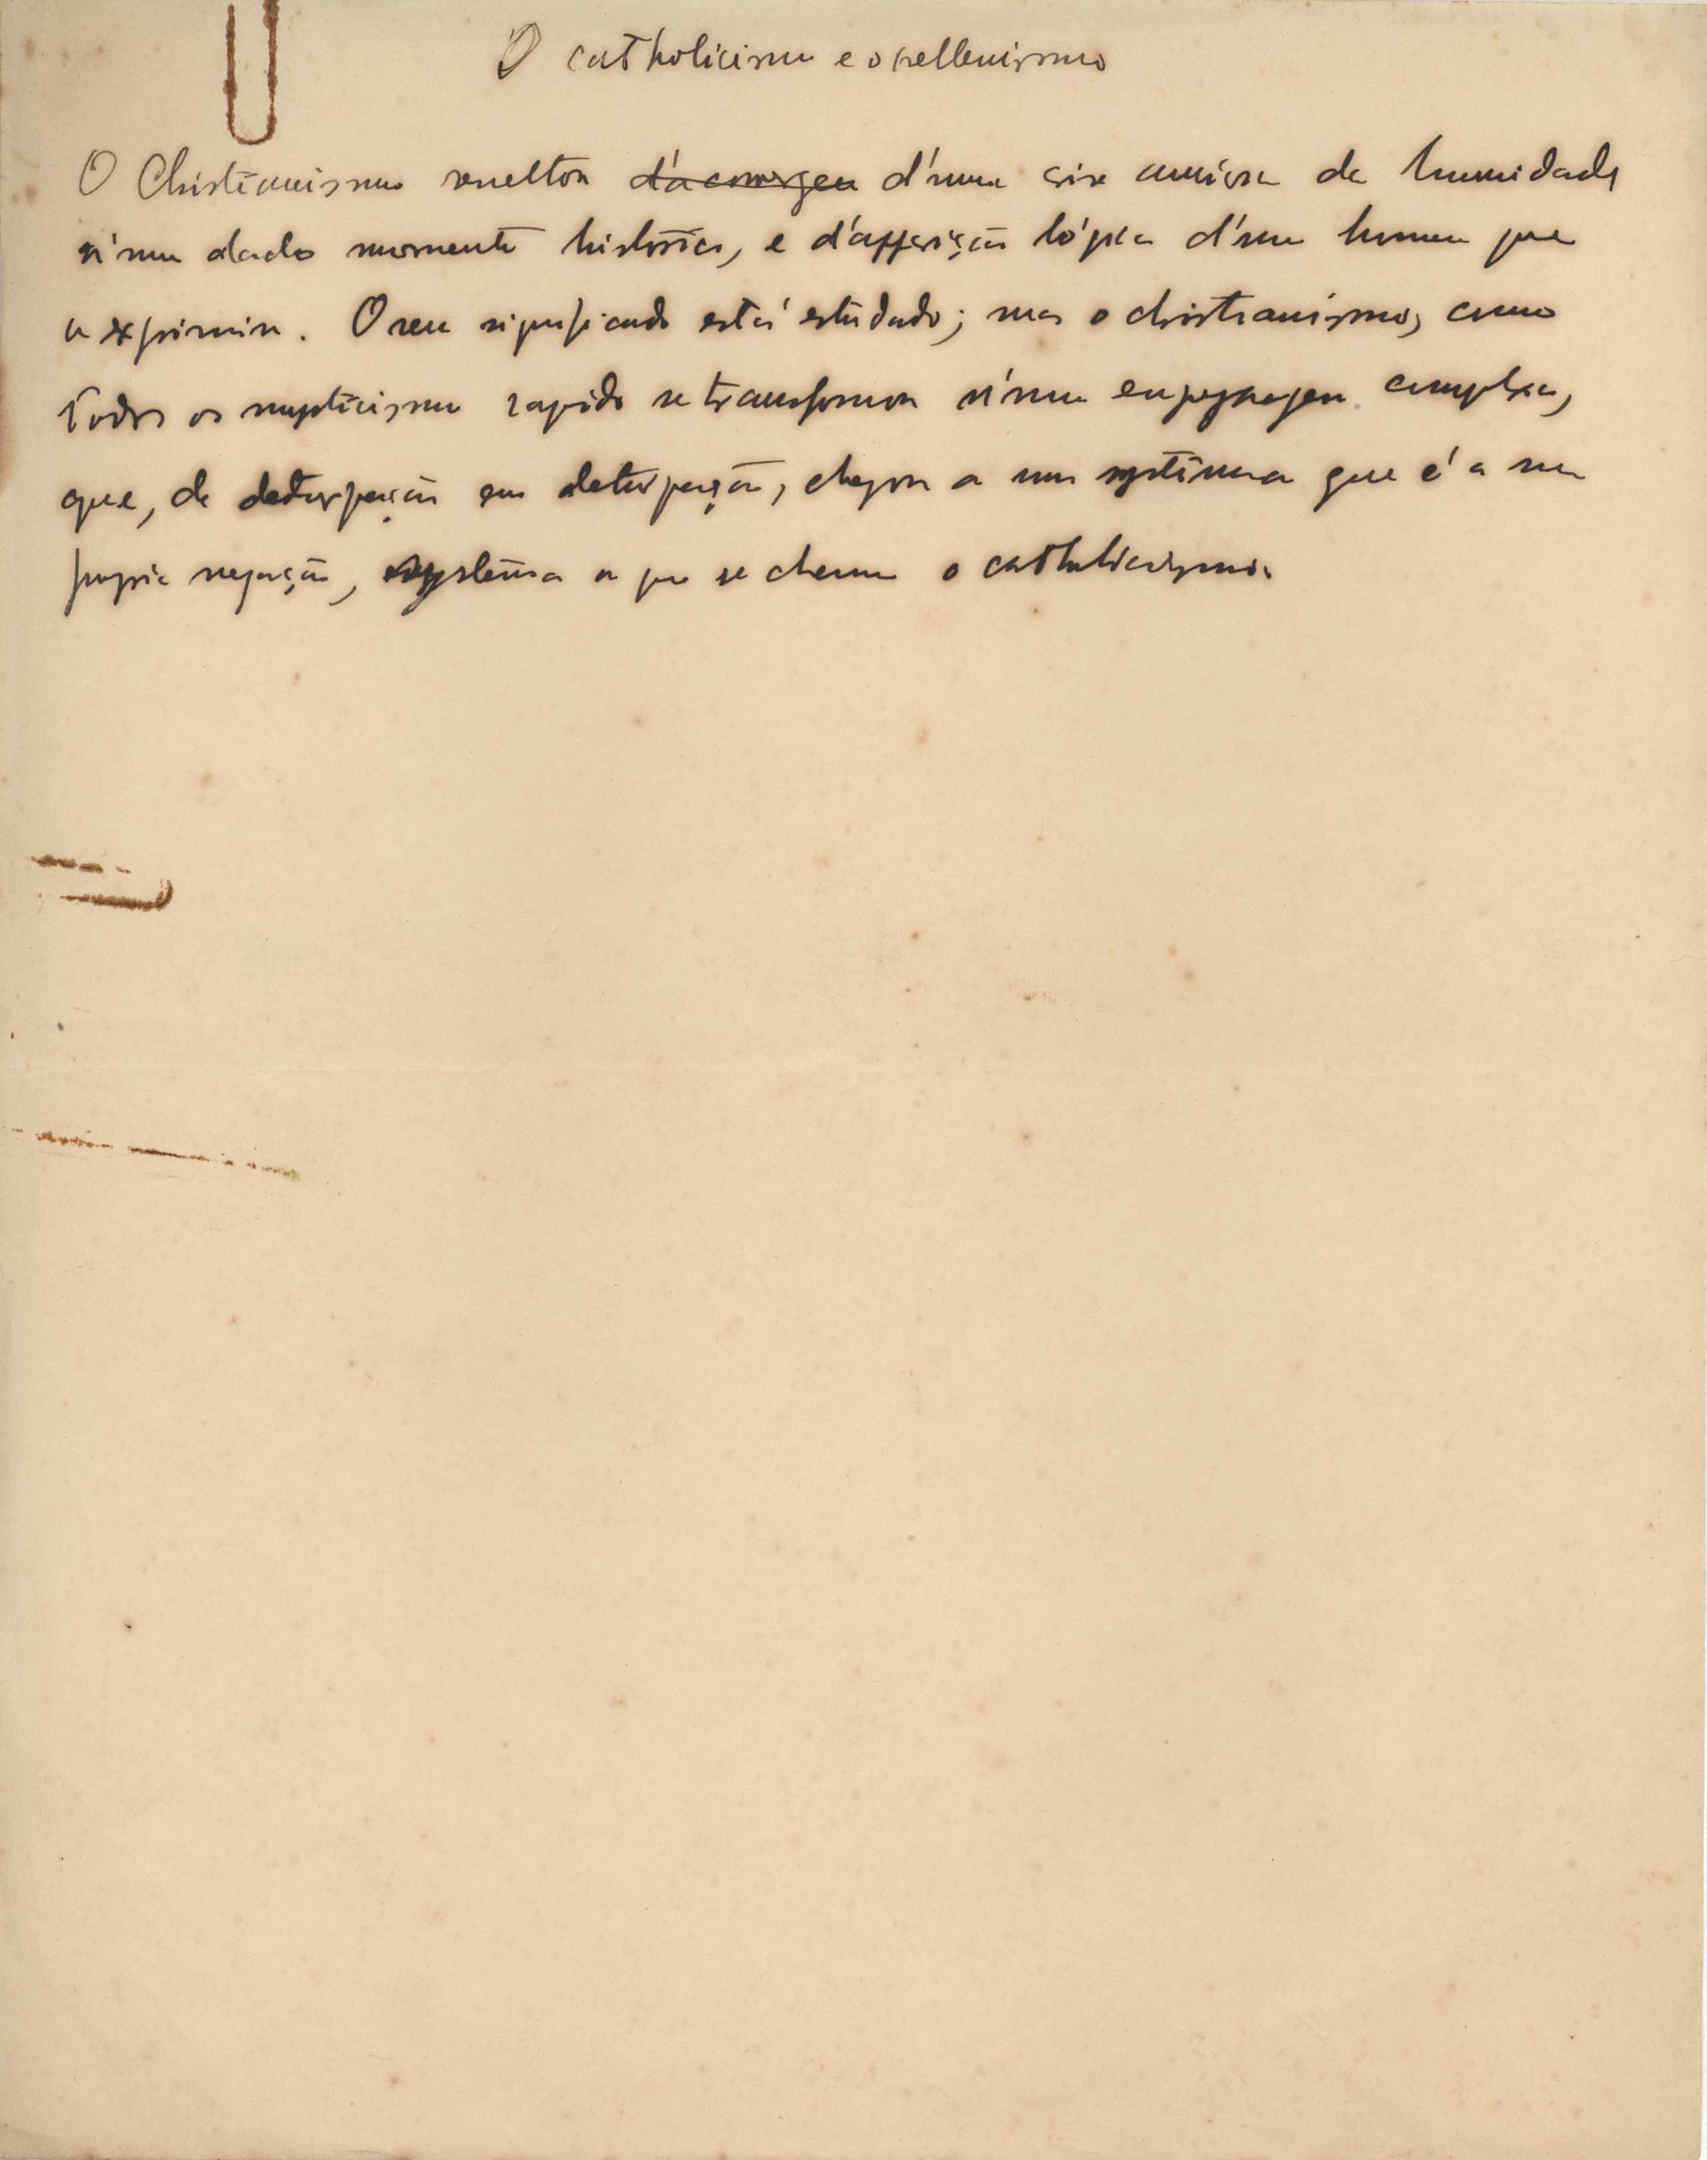 O catholicismo e o hellenismo
O Christianismo resultou d'uma crise da humanidade
n'um dado momento historico, e d'apparição lógica d'um homem que
a exprimiu. O seu significado está estudado; mas o christianismo, como
todos os mysticismos rapido se transformou n'uma engrenagem complexa,
que, de deturpação em deturpação, chegou a um systema que é a sua
propria negação, systema a que se chama o catholicismo.